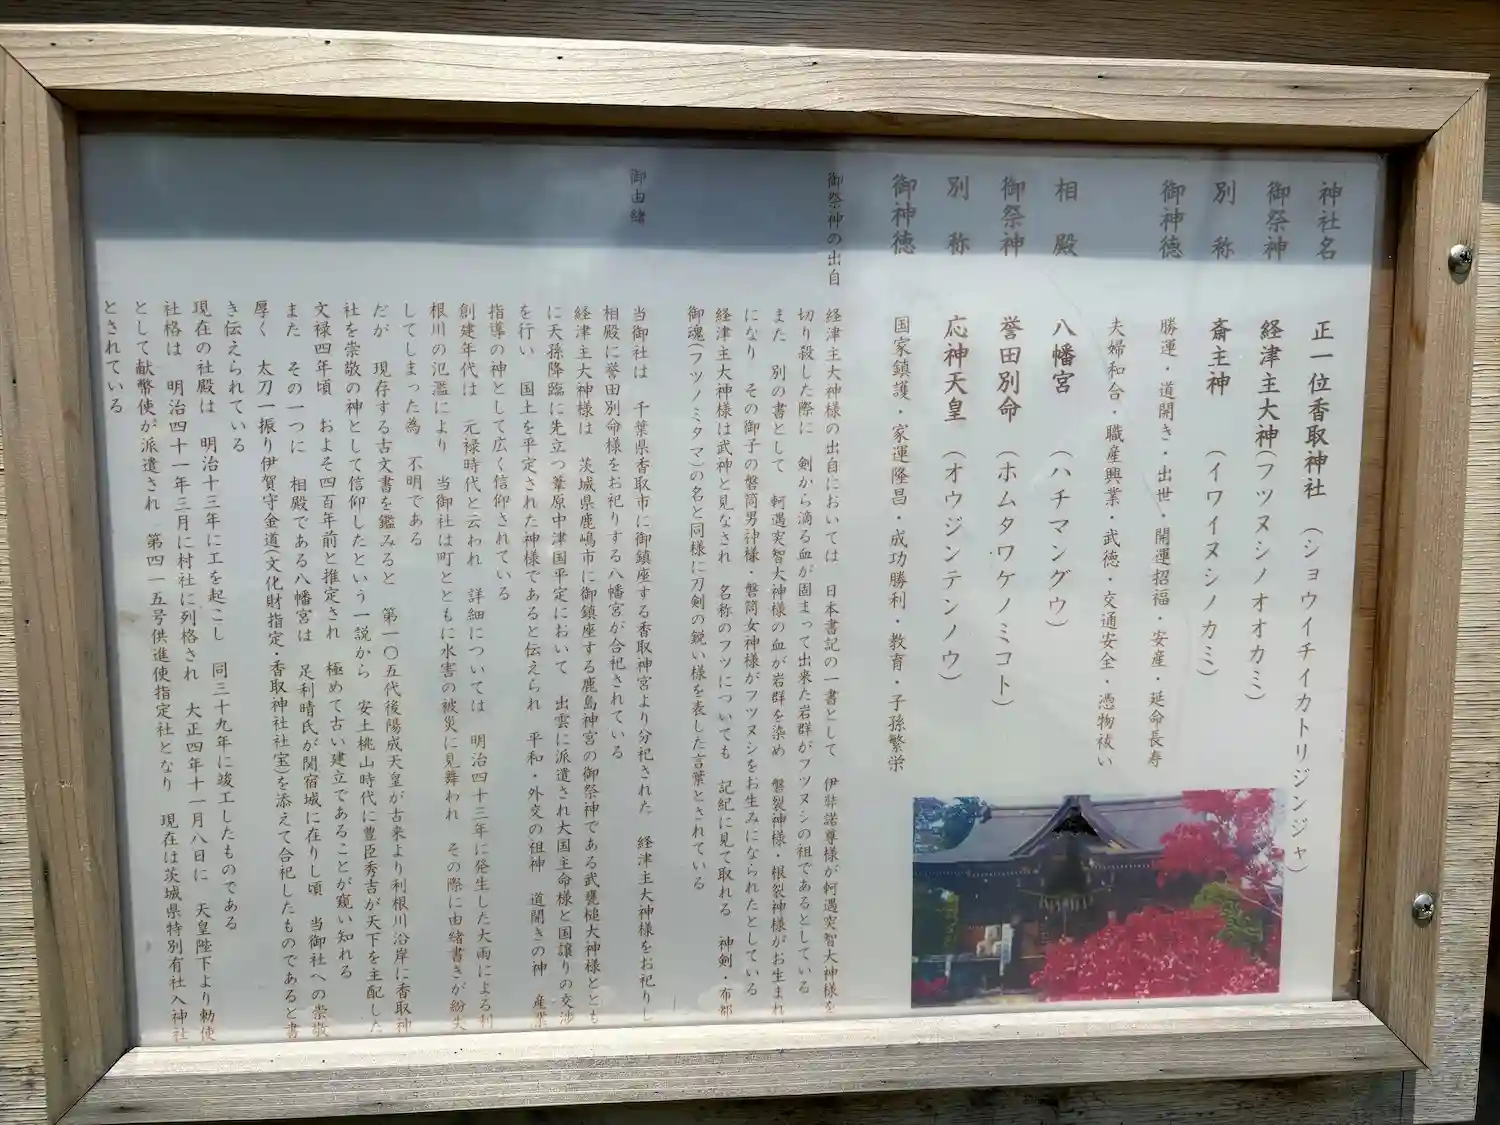 神社名 正一位香取神社 (ショウイチイカトリジンジャ)
御祭神 経津主大神(フツヌシノオオカミ)
別称 斎主神 (イワイヌシノカミ)
御神徳 勝運・道開き・出世・開運招福・安産・延命長寿
夫婦和合・職産興業・武徳・交通安全・憑物祓い
相殿 八幡宮 (ハチマングウ)
御祭神 誉田別命 (ホムタワケノミコト)
別称 応神天皇 (オウジンテンノウ)
御神徳 国家鎮護・家運隆昌・成功勝利・教育・子孫繁栄
御祭神の出自 経津主大神様の出自においては 日本書記の一書として 伊弉諾尊様が軻遇突智大神様を
切り殺した際に 剣から滴る血が固まって出来た岩群がフツヌシの祖であるとしている
また 別の書として 軻遇突智大神様の血が岩群を染め 磐裂神様・根裂神様がお生まれ
になり その御子の磐筒男神様・磐筒女神様がフツヌシをお生みになられたとしている
経津主大神様は武神と見なされ 名称のフツについても 記紀に見て取れる 神剣・布都
御魂(フツノミタマ)の名と同様に刀剣の鋭い様を表した言葉とされている
御由緒 当御社は 千葉県香取市に御鎮座する香取神宮より分祀された 経津主大神様をお祀りし
相殿に誉田別命様をお祀りする八幡宮が合祀されている
経津主大神様は 茨城県鹿嶋市に御鎮座する鹿島神宮の御祭神である武甕槌大神様ととも
に天孫降臨に先立つ葦原中津国平定において 出雲に派遣され大国主命様と国譲りの交渉
を行い 国土を平定された神様であると伝えられ 平和・外交の祖神 道開きの神 産業
指導の神として広く信仰されている
創建年代は 元禄時代と云われ 詳細については 明治四十三年に発生した大雨による利
根川の氾濫により 当御社は町とともに水害の被災に見舞われ その際に由緒書きが紛失
してしまった為 不明である
だが 現存する古文書を鑑みると 第一〇五代後陽成天皇が古来より利根川沿岸に香取神
社を崇敬の神として信仰したという一説から 安土桃山時代に豊臣秀吉が天下を主配した
文禄四年頃 およそ四百年前と推定され 極めて古い建立であることが窺い知れる
また その一つに 相殿である八幡宮は 足利晴氏が関宿城に在りし頃 当御社への崇敬
厚く 太刀一振り伊賀守金道(文化財指定・香取神社社宝)を添えて合祀したものであると書
き伝えられている
現在の社殿は 明治十三年に工を起こし 同三十九年に竣工したものである
社格は 明治四十一年三月に村社に列格され 大正四年十一月八日に 天皇陛下より勅使
として献幣使が派遣され 第四一五号供進使指定社となり 現在は茨城県特別有社入神社
とされている